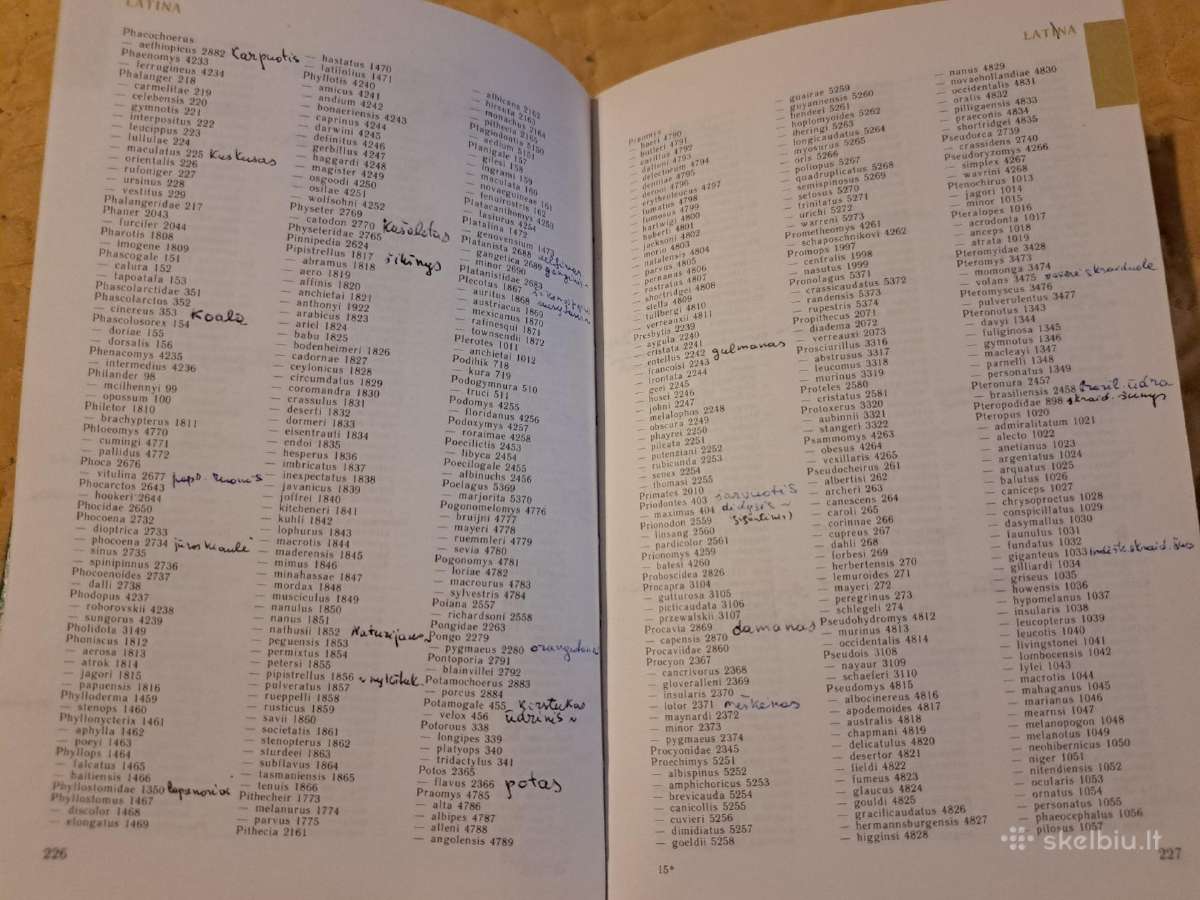 LATINA
Phacochoerus
— aethiopicus 2882 Karpuotis
Phaenomys 4233
— ferrugineus 4234
Phalanger 218
— carmelitae 219
— celebensis 220
— gymnotis 221
— interpositus 222
— leucippus 223
— lullulae 224
— maculatus 225 Kuskusas
— orientalis 226
— rufoniger 227
— ursinus 228
— vestitus 229
Phalangeridae 217
Phaner 2043
— furcifer 2044
Pharotis 1808
— imogene 1809
Phascogale 151
— calura 152
— tapoatafa 153
Phascolarctidae 351
Phascolarctus 352
— cinereus 353 Koala
Phascolosorex 154
— doriae 155
— dorsalis 156
Phenacomys 4235
— intermedius 4236
Philander 98
— mcilhennyi 99
— opossum 100
Philetor 1810
— brachypterus 1811
Phloeomys 4770
— cumingi 4771
— pallidus 4772
Phoca 2676
— vitulina 2677
Phocarctos 2643
— hookeri 2644
Phocidae 2650
Phocoena 2732
— dioptrica 2733
— phocoena 2734 jūros kiaulė
— sinus 2735
— spinipinnus 2736
Phocoenoides 2737
— dalli 2738
Phodopus 4237
— roborovskii 4238
— sungorus 4239
Pholidota 3149
Phoniscus 1812
— aerosa 1813
— atrok 1814
— jagori 1815
— papuensis 1816
Phylloderma 1459
— stenops 1460
Phyllonycterix 1461
— aphylla 1462
— poeyi 1463
Phyllops 1464
— falcatus 1465
— haitiensis 1466
Phyllostomidae 1350 lapanosiai
Phyllostomus 1467
— discolor 1468
— elongatus 1469
— hastatus 1470
— latifolius 1471
Phyllotis 4240
— amicus 4241
— andium 4242
— bonaeriensis 4243
— caprinus 4244
— darwini 4245
— definitus 4246
— gerbillus 4247
— haggardi 4248
— magister 4249
— osgoodi 4250
— osilae 4251
— wolfsohni 4252
Physeter 2769
— catodon 2770 Kašalotas
Physeteridae 2765
Pinnipedia 2624
Pipistrellus 1817 šikšnys
— abramus 1818
— aero 1819
— affinis 1820
— anchietai 1821
— anthonyi 1922
— arabicus 1823
— ariel 1824
— babu 1825
— bodenheimeri 1826
— cadornae 1827
— ceylonicus 1828
— circumdatus 1829
— coromandra 1830
— crassulus 1831
— deserti 1832
— dormeri 1833
— eisentrauti 1834
— endoi 1835
— hesperus 1836
— imbricatus 1837
— inexpectatus 1838
— javanicus 1839
— joffrei 1840
— kitcheneri 1841
— kuhli 1842
— lophurus 1843
— macrotis 1844
— maderensis 1845
— mimus 1846
— minahassae 1847
— mordax 1848
— musciculus 1849
— nanulus 1850
— nanus 1851
— nathusii 1852 Natuzijaus
— peguensis 1853
— permixtus 1854
— petersi 1855
— pipistrellus 1856
— pulveratus 1857
— rueppelli 1858
— rusticus 1859
— savii 1860
— societatis 1861
— stenopterus 1862
— sturdeei 1863
— subflavus 1864
— tasmaniensis 1865
— tenuis 1866
Pithecheir 1773
— melanurus 1774
— parvus 1775
Pithecia 2161
— albicans 2162
— hirsuta 2163
— monachus 2164
— pitheria 2165
Plagiodontis 5150
— aedium 5151
Planigale 157
— gilesi 158
— ingrami 159
— maculata 160
— novaeguineae 161
— tenuirostris 162
Platacanthomys 4253
— lasiurus 4254
Platalina 1472
— genovensium 1473
Platanista 2688
— gangetica 2689
— minor 2690
Platanistidae 2683
Plecotus 1867
— auritus 1868
— austriacus 1869
— mexicanus 1870
— rafinesqui 1871
— townsendii 1872
Plerotes 1011
— anchietai 1012
Podihik 718
— kura 719
Podogymnura 510
— truei 511
Podomys 4255
— floridanus 4256
Podoxymys 4257
— roraimae 4258
Poecilictis 2453
— libyca 2454
Poecilogale 2455
— albinuchs 2456
Poelagus 5369
— marjorita 5370
Pogonomelomys 4776
— bruijni 4777
— mayeri 4778
— ruemmleri 4779
— sevia 4780
Pogonomys 4781
— loriae 4782
— macrourus 4783
— sylvestris 4784
Poiana 2557
— richardsoni 2558
Pongidae 2263
Pongo 2279
— pygmaeus 2280 orangutanas
Pontoporia 2791
— blainvillei 2792
Potamochoerus 2883
— porcus 2884
Potamogale 455 Kirstukas
— velox 456 ūdrinis ~
Potorous 338
— longipes 339
— platyops 340
— tridactylus 341
Potos 2365
— flavus 2366 potas
Praomys 4785
— alta 4786
— albipes 4787
— alleni 4788
— angolensis 4789
226
LATINA
Praomys
— baeri 4790
— butleri 4791
— carillus 4792
— dalluni 4793
— delectorum 4794
— denniae 4795
— derooi 4796
— erythroleucus 4797
— fumatus 4798
— fumosus 4799
— hartwigi 4800
— huberti 4801
— jacksoni 4802
— morio 4803
— natalensis 4804
— parvus 4805
— pernanus 4806
— rostratus 4807
— shortridgei 4808
— stella 4809
— tullbergi 4810
— verreauxii 4811
Presbytis 2239
— aygula 2240
— cristata 2241
— entellus 2242 gulmanas
— francoisi 2243
— frontata 2244
— geei 2245
— hosei 2246
— johni 2247
— melalophos 2248
— obscura 2249
— phayrei 2250
— pileata 2251
— potenziani 2252
— rubicunda 2253
— senex 2254
— thomasi 2255
Primates 2010
Priodontes 403 šarvuotis
— maximus 404 didysis ~
(gigantinis)
Prionodon 2559
— linsang 2560
— pardicolor 2561
Prionomys 4259
— batesi 4260
Proboscidea 2826
Procapra 3104
— gutturosa 3105
— picticaudata 3106
— przewalskii 3107
Procavia 2869
— capensis 2870 damanas
Procaviidae 2860
Procyon 2367
— cancrivorus 2368
— gloveralleni 2369
— insularis 2370
— lotor 2371 meškėnas
— maynardi 2372
— minor 2373
— pygmaeus 2374
Procyonidae 2345
Proechimys 5251
— albispinus 5252
— amphichoricus 5253
— brevicauda 5254
— canicollis 5255
— cuvieri 5256
— dimidiatus 5257
— goeldii 5258
— guairae 5259
— guyannensis 5260
— hendeei 5261
— hoplomyoides 5262
— iheringi 5263
— longicaudatus 5264
— myosurus 5265
— oris 5266
— poliopus 5267
— quadruplicatus 5268
— semispinosus 5269
— setosus 5270
— trinitatus 5271
— urichi 5272
— warreni 5273
Prometheomys 4261
— schaposchnikovi 4262
Promops 1997
— centralis 1998
— nasutus 1999
Pronolagus 5371
— crassicaudatus 5372
— randensis 5373
— rupestris 5374
Propithecus 2071
— diadema 2072
— verreauxi 2073
Prosciurillus 3316
— abstrusus 3317
— leucomus 3318
— murinus 3319
Proteles 2580
— cristatus 2581
Protoxerus 3320
— aubinnii 3321
— stangeri 3322
Psammomys 4263
— obesus 4264
— vexillaris 4265
Pseudocheirus 261
— albertisi 262
— archeri 263
— canescens 264
— caroli 265
— corinnae 266
— cupreus 267
— dahli 268
— forbesi 269
— herbertensis 270
— lemuroides 271
— mayeri 272
— peregrinus 273
— schlegeli 274
Pseudohydromys 4812
— murinus 4813
— occidentalis 4814
Pseudois 3108
— nayaur 3109
— schaeferi 3110
Pseudomys 4815
— albocinereus 4816
— apodemoides 4817
— australis 4818
— chapmani 4819
— delicatulus 4820
— desertor 4821
— fieldi 4822
— fumeus 4823
— glaucus 4824
— gouldi 4825
— gracilicaudatus 4826
— hermannsburgensis 4827
— higginsi 4828
— nanus 4829
— novaehollandiae 4830
— occidentalis 4831
— oralis 4832
— pilligaensis 4833
— praeconis 4834
— shortridgei 4835
Pseudorca 2739
— crassidens 2740
Pseudoryzomys 4266
— simplex 4267
— wavrini 4268
Ptenochirus 1013
— jagori 1014
— minor 1015
Pteralopes 1016
— acrodonta 1017
— anceps 1018
— atrata 1019
Pteromyidae 3428
Pteromys 3473
— momonga 3474
— volans 3475 voverė skraiduolė
Pteromyscus 3476
— pulverulentus 3477
Pteronotus 1343
— davyi 1344
— fuliginosa 1345
— gymnotus 1346
— macleayi 1347
— parnelli 1348
— personatus 1349
Pteronura 2457
— brasiliensis 2458 brazil. ūdra
Pteropodidae 898 skraid. šunys
Pteropus 1020
— admiralitatum 1021
— alecto 1022
— anetianus 1023
— argentatus 1024
— arquatus 1025
— balutus 1026
— caniceps 1027
— chrysoproctus 1028
— conspicillatus 1029
— dasymallus 1030
— faunulus 1031
— fundatus 1032
— giganteus 1033 indišk. skraid. šuo
— gilliardi 1034
— griseus 1035
— howensis 1036
— hypomelanus 1037
— insularis 1038
— leucopterus 1039
— leucotis 1040
— livingstonei 1041
— lombocensis 1042
— lylei 1043
— macrotis 1044
— mahaganus 1045
— marianus 1046
— mearnsi 1047
— melanopogon 1048
— melanotus 1049
— neohibernicus 1050
— niger 1051
— nitendiensis 1052
— ocularis 1053
— ornatus 1054
— personatus 1055
— phaeocephalus 1056
— pilosus 1057
15*
227
skelbiu.lt